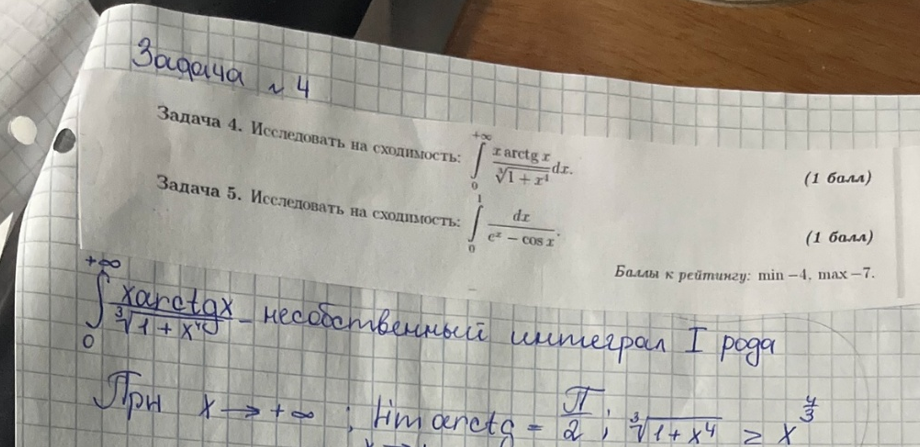 Задача № 4
Задача 4. Исследовать на сходимость: ∫₀^{+∞} x arctg x / ∛(1 + x⁴) dx. (1 балл)
Задача 5. Исследовать на сходимость: ∫₀¹ dx / (eˣ − cos x). (1 балл)
Баллы к рейтингу: min −4, max −7.
∫₀^{+∞} xarctgx / ∛(1 + x⁴) – несобственный интеграл I рода
При x → +∞ ; lim arctg = П/2 ; ∛(1 + x⁴) ≥ x^{4/3}